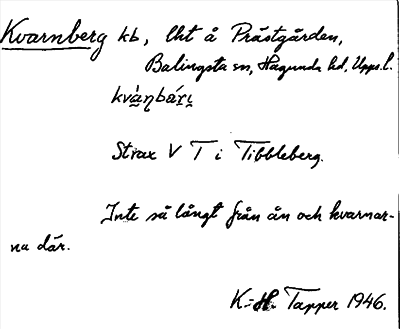 Kvarnberg kb, lht å Prästgården,
Balingsta sn, Hagunda hd, Upps. l.
kvàṇbár̯i̯
Strax V T i Tibbleberg.
Inte så långt från ån och kvarnar-
na där.
K.-H. Tapper 1946.